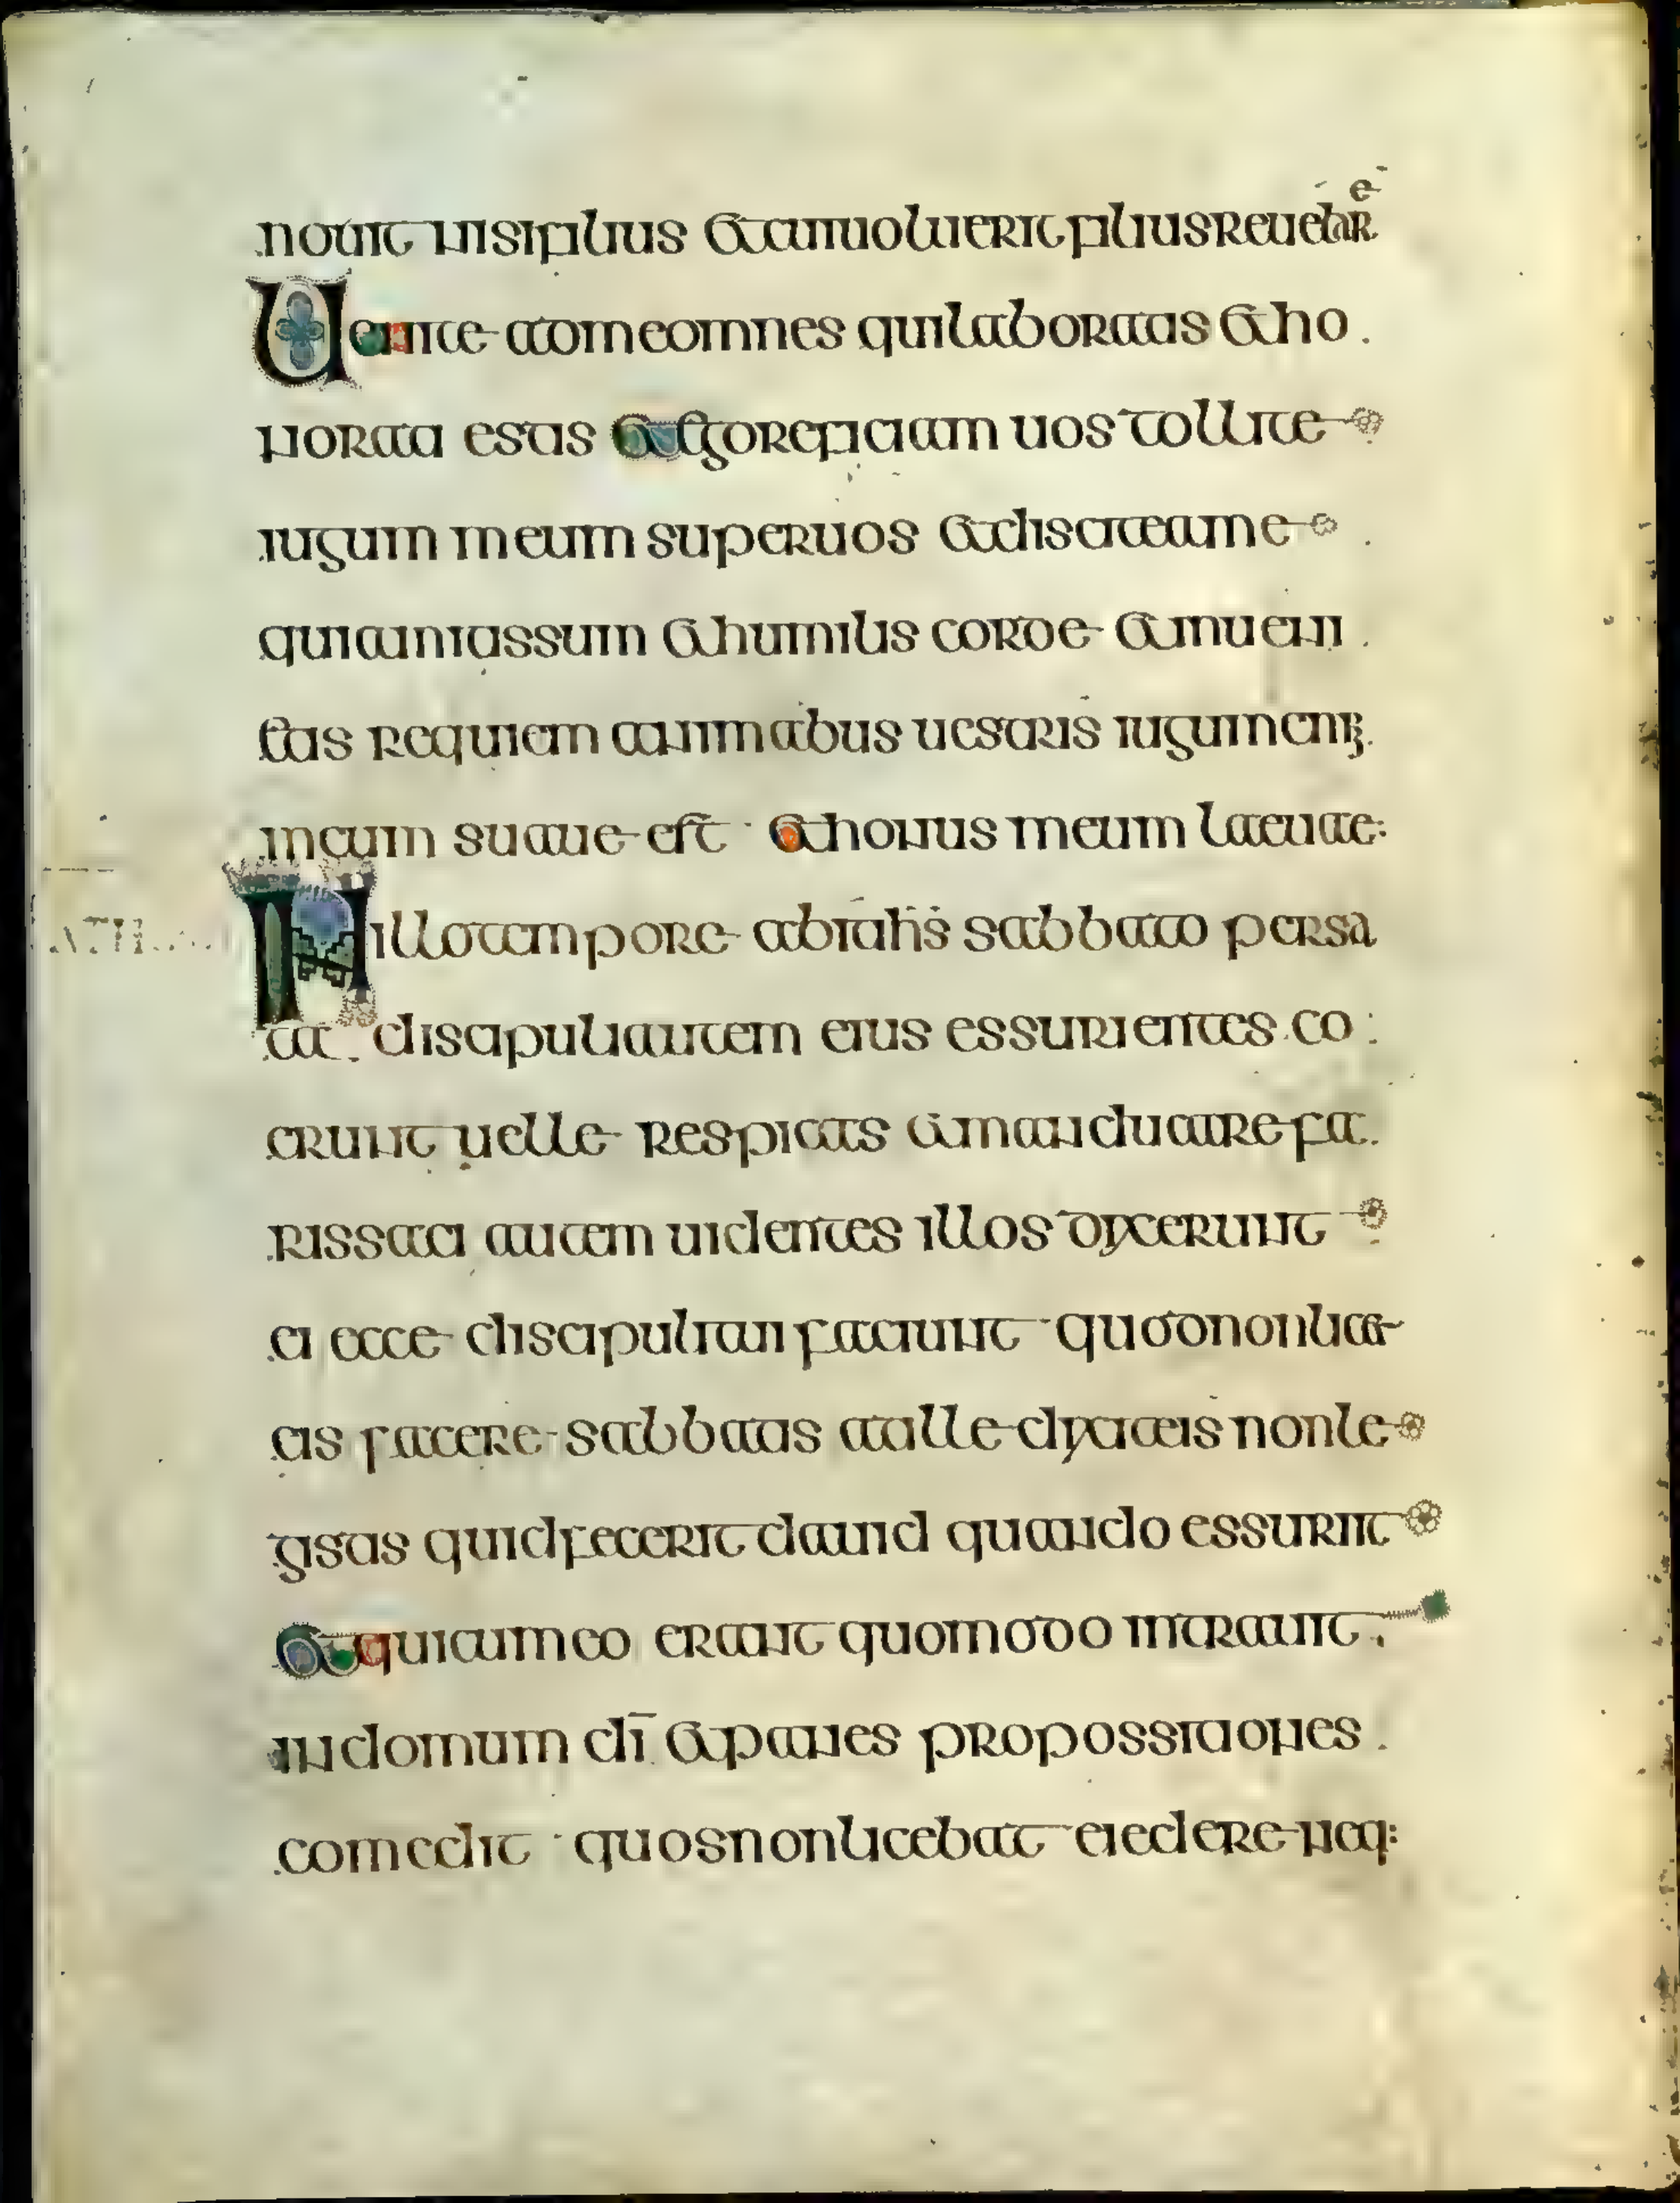 nouit nisi filius et cui uoluerit filius reuelar̄e
Uenite ad me omnes qui laboratis et ho
norati estis et ego reficiam uos tollite
iugum meum super uos et discite a me
quia mitis sum et humilis corde et inueni
etis requiem animabus uestris iugum enī
meum suaue est · et honus meum laeuae:
In illo tempore abiit iħs sabbato per sa
ta . discipuli autem eius essurientes co :
erunt uelle respicas et manducare fa.
rissaei autem uidentes illos dixerunt
ei ecce discipuli tui faciunt · quod non licet
eis facere sabbatis at ille dixit eis non le
gistis quid fecerit dauid quando essuriit
et qui cum eo erant quomodo intrauit .
in domum dī et panes propossitiones .
comedit · quos non licebat ei edere neq: